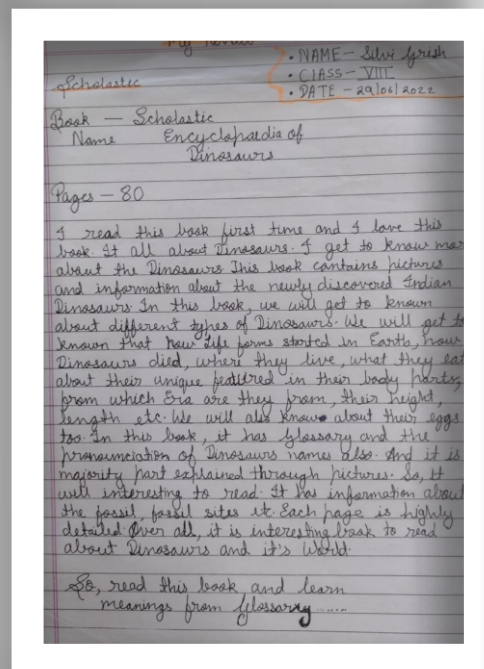 My Review
• NAME - Silvi Girish
• CLASS - VIII
Scholastic
• DATE - 29/06/2022
Book — Scholastic
Name Encyclopaedia of
Dinosaurs
Pages - 80
I read this book first time and I love this
book. It all about Dinosaurs. I get to know mor
about the Dinosaurs This book contains pictures
and information about the newly discovered Indian
Dinosaurs. In this book, we will get to known
about different types of Dinosaurs. We will get to
known that how Life forms started in Earth, how
Dinosaurs died, where they live, what they eat
about their unique featured in their body parts,
from which Era are they from, their height,
length etc. We will also know about their eggs
too. In this book, it has Glossary and the
pronounciation of Dinosaurs names also. And it is
majority part explained through pictures. So, it
will interesting to read. It has information about
the fossil, fossil sites etc. Each page is highly
detailed. Over all, it is interesting book to read
about Dinosaurs and it's World.
So, read this book and learn
meanings from Glossary......